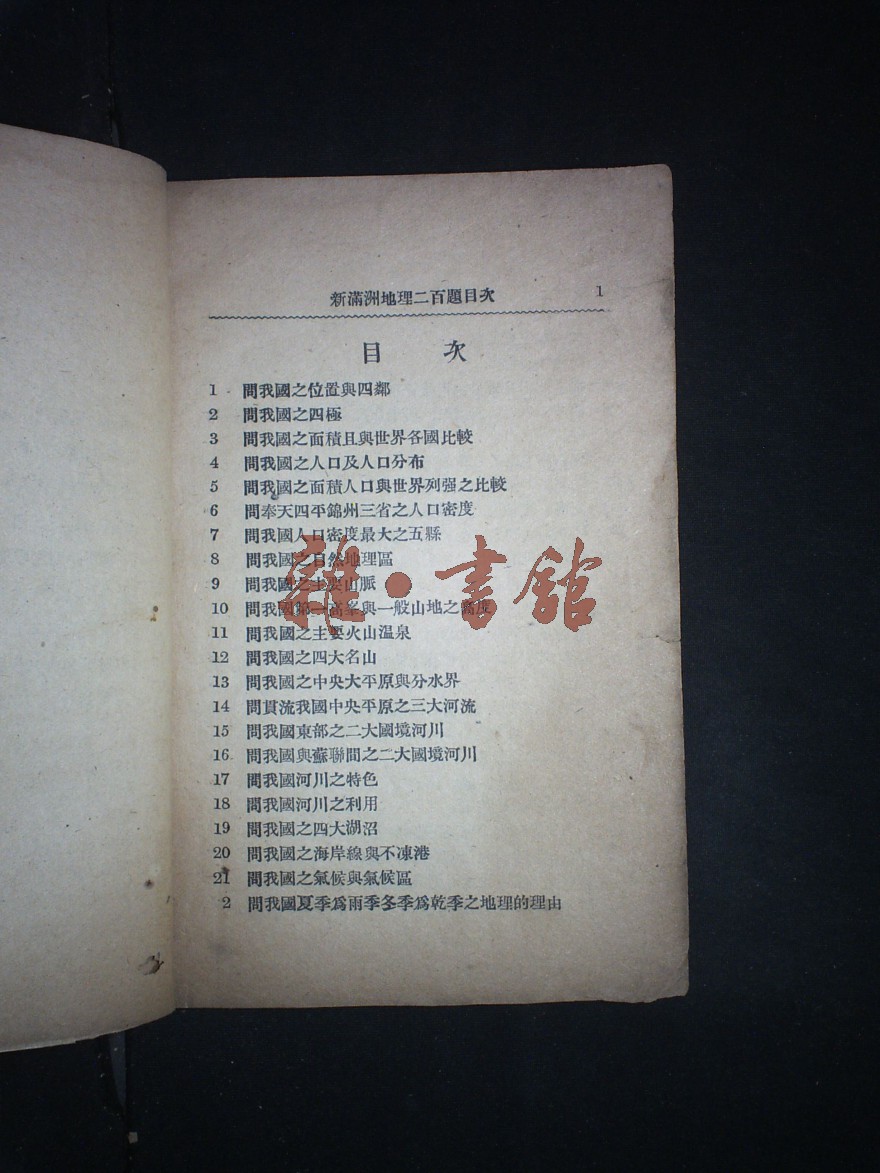 新滿洲地理二百題目次 1
目 次
1 問我國之位置與四鄰
2 問我國之四極
3 問我國之面積且與世界各國比較
4 問我國之人口及人口分布
5 問我國之面積人口與世界列强之比較
6 問奉天四平錦州三省之人口密度
7 問我國人口密度最大之五縣
8 問我國之自然地理區
9 問我國之主要山脈
10 問我國第一高峯與一般山地之高度
11 問我國之主要火山温泉
12 問我國之四大名山
13 問我國之中央大平原與分水界
14 問貫流我國中央平原之三大河流
15 問我國東部之二大國境河川
16 問我國與蘇聯間之二大國境河川
17 問我國河川之特色
18 問我國河川之利用
19 問我國之四大湖沼
20 問我國之海岸線與不凍港
21 問我國之氣候與氣候區
2 問我國夏季爲雨季冬季爲乾季之地理的理由
雜·書館